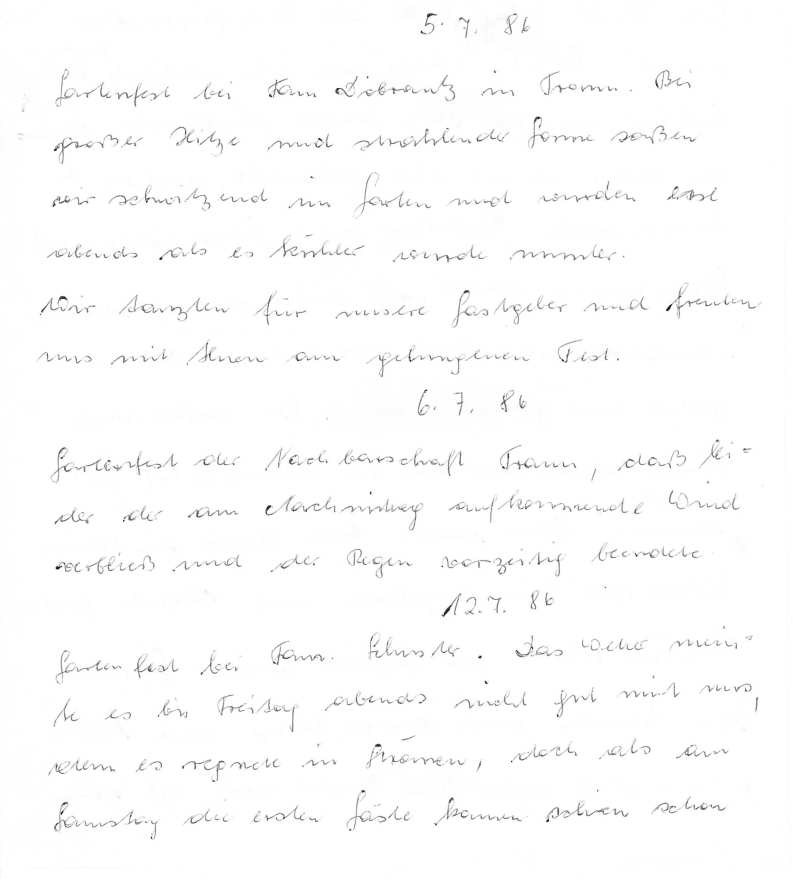 5. 7. 86
Gartenfest bei Fam Dobrantz in Traun. Bei
großer Hitze und strahlender Sonne saßen
wir schwitzend im Garten und wurden erst
abends als es kühler wurde munter.
Wir tanzten für unsere Gastgeber und freuten
uns mit Ihnen am gelungenen Fest.
6. 7. 86
Gartenfest der Nachbarschaft Traun, daß lei=
der der am Nachmittag aufkommende Wind
verbließ und der Regen vorzeitig beendete.
12. 7. 86
Gartenfest bei Fam. Schuster. Das Wetter mein=
te es bis Freitag abends nicht gut mit uns,
denn es regnete in Strömen, doch als am
Samstag die ersten Gäste kamen schien schon